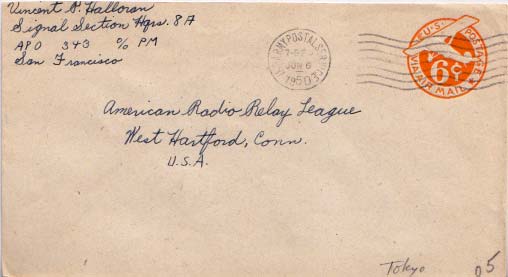 Vincent P. Halloran
Signal Section Hqrs. 8A
APO 343 % PM
San Francisco
ARMY POSTAL
JUN 6
1950
U.S. POSTAGE
6¢
VIA AIR MAIL
American Radio Relay League
West Hartford, Conn.
U.S.A.
Tokyo
05